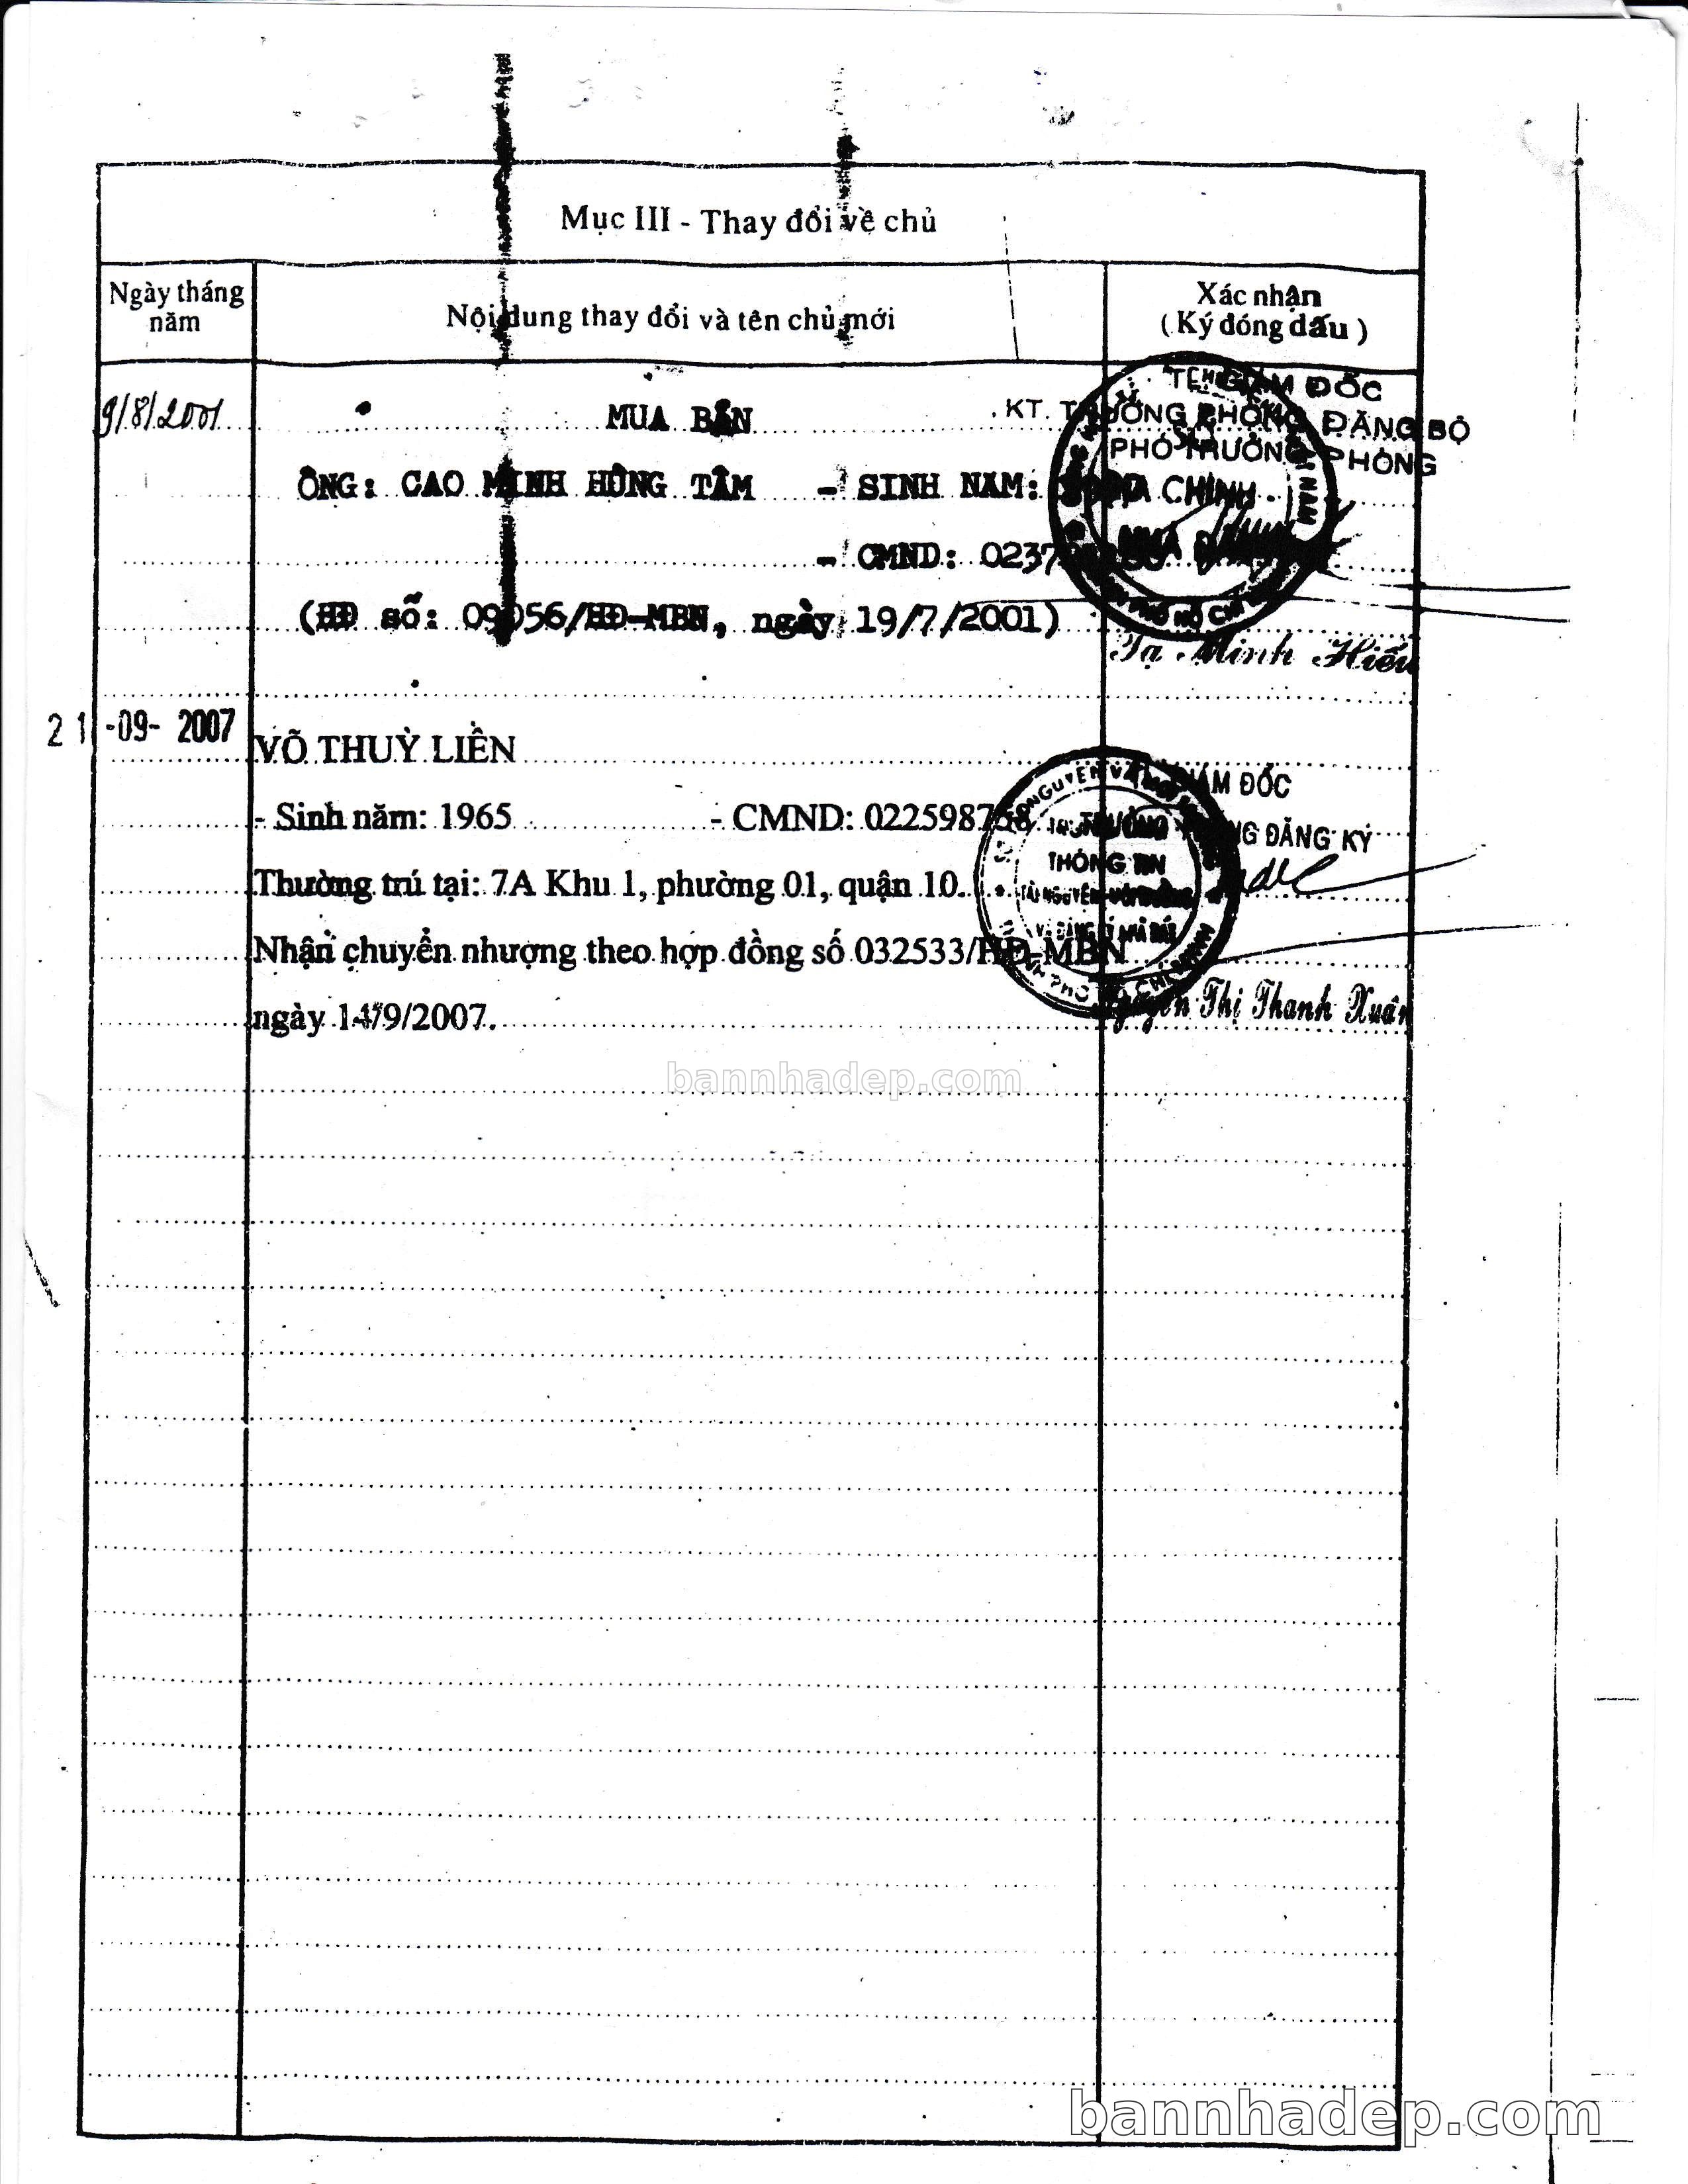 Mục III - Thay đổi về chủ
Ngày tháng
năm
Nội dung thay đổi và tên chủ mới
Xác nhận
( Ký đóng dấu )
9/8/2001
MUA BÁN
GIÁM ĐỐC
KT. TRƯỞNG PHÒNG ĐĂNG BỘ
PHÓ TRƯỞNG PHÒNG
ÔNG: CAO MINH HÙNG TÂM - SINH NĂM:
ĐỊA CHÍNH
- CMND:
NHÀ ĐẤT
(HĐ số: 09056/HĐ-MBN, ngày 19/7/2001)
Tạ Minh Hiếu
21-09-2007
VÕ THUỲ LIÊN
GIÁM ĐỐC
- Sinh năm: 1965 - CMND: 022598758
TRƯỞNG PHÒNG ĐĂNG KÝ
THÔNG TIN
Thường trú tại: 7A Khu 1, phường 01, quận 10.
TÀI NGUYÊN MÔI TRƯỜNG
VÀ ĐĂNG KÝ NHÀ ĐẤT
Nhận chuyển nhượng theo hợp đồng số 032533/HĐ-MBN
Nguyễn Thị Thanh Xuân
ngày 14/9/2007.
bannhadep.com
bannhadep.com